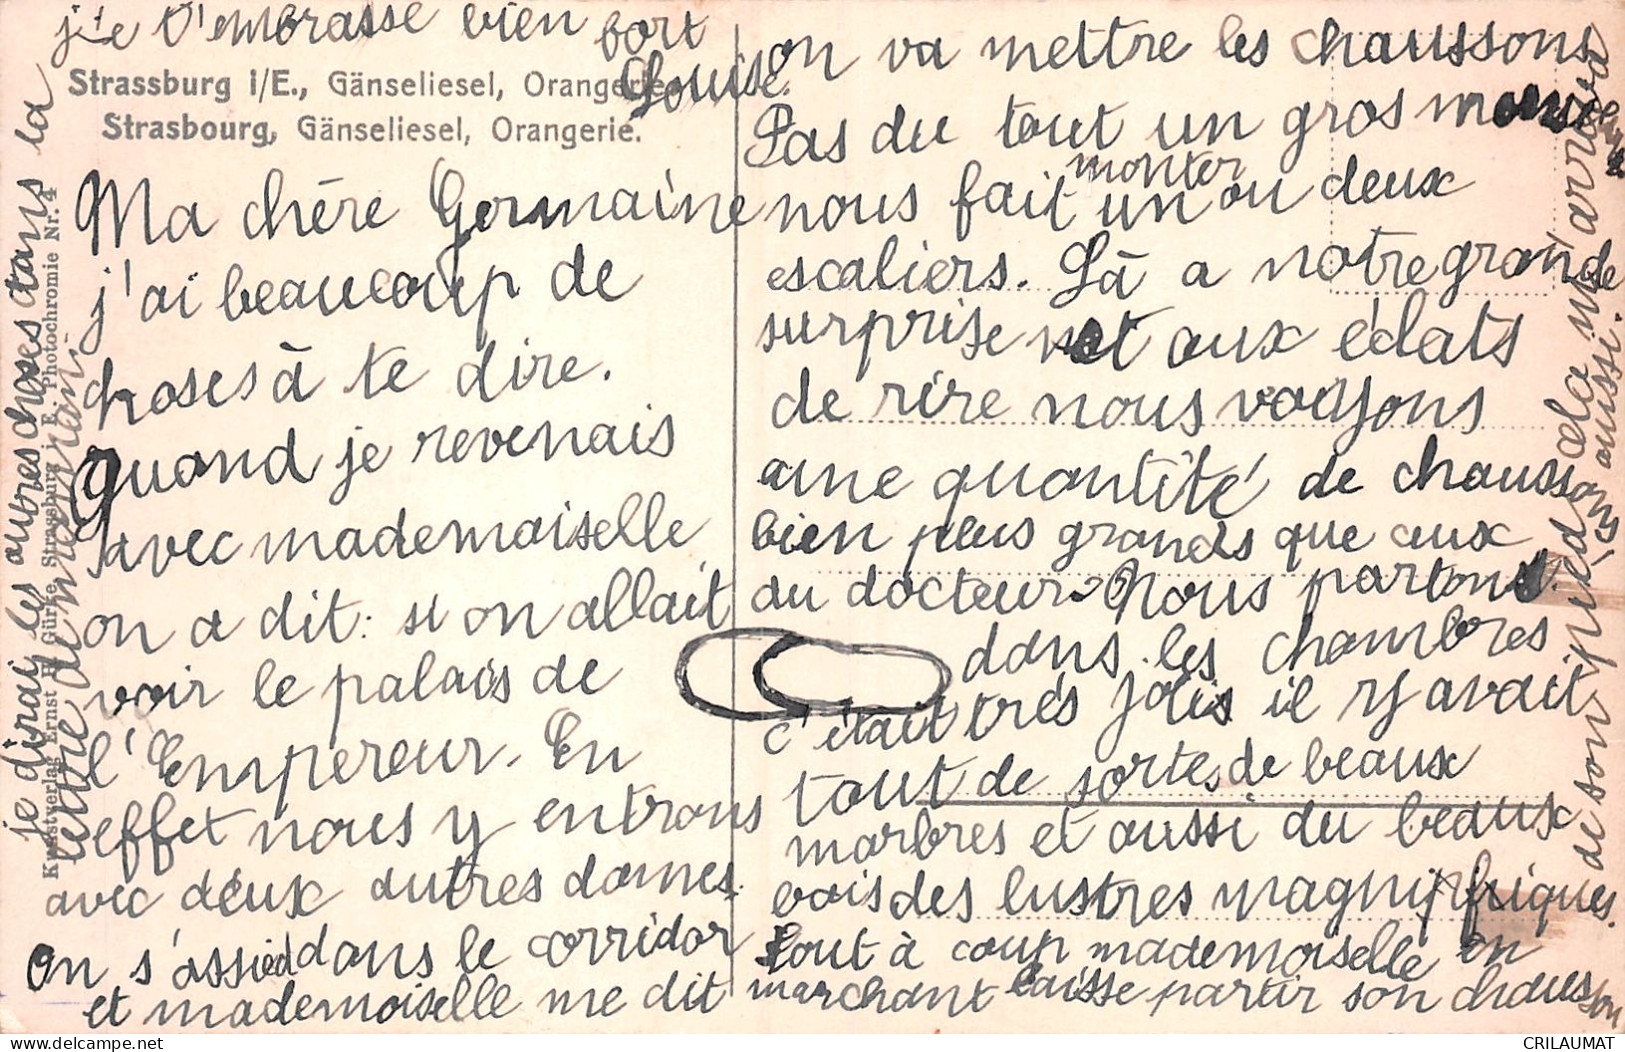 Strassburg i/E., Gänseliesel, Orangerie.
Strasbourg, Gänseliesel, Orangerie.
Kunstverlag Ernst H. Gürke, Strassburg i. E. Photochromie Nr. 4
Ma chère Germaine
j'ai beaucoup de
choses à te dire.
Quand je revenais
avec mademoiselle
on a dit: si on allait
voir le palais de
l'Empereur. En
effet nous y entrons
avec deux autres dames.
On s'assied dans le corridor
et mademoiselle me dit
on va mettre les chaussons
Pas du tout un gros
nous fait monter un ou deux
escaliers. Là a notre grande
surprise et aux éclats
de rire nous voyons
une quantité de chaussons
bien plus grands que ceux
du docteur. Nous partons
dans les chambres
c'était très jolis il y avait
tout de sortes de beaux
marbres et aussi du beaux
bois des lustres magnifiques.
tout à coup mademoiselle en
marchant laisse partir son chausson
de son pied cela m'arriva
aussi.
je dirai les autres choses dans la
lettre de
je t'embrasse bien fort
Louise.
CRILAUMAT